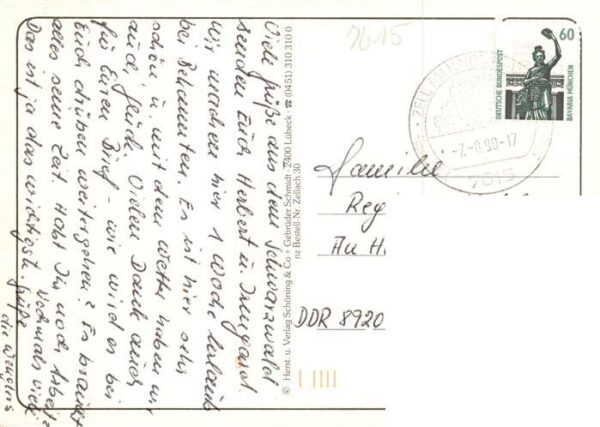 Viele Grüße aus dem Schwarzwald
senden Euch Herbert u. Irmgard.
Wir machen hier 1 Woche Urlaub
bei Bekannten. Es ist hier sehr
schön u. mit dem Wetter haben wir
auch Glück. Vielen Dank auch
für Euren Brief - wie wird es bei
Euch drüben weitergehen? Es braucht
alles seine Zeit. Habt Ihr noch Arbeit?
Das ist ja das wichtigst. Nochmals viele
Grüße
die Wenglers
© Herst. u. Verlag Schöning & Co + Gebrüder Schmidt · 2400 Lübeck · ☎ (0451) 310 310 0
nz Bestell-Nr. Zellach 30
7615
60
DEUTSCHE BUNDESPOST
BAVARIA MÜNCHEN
ZELL AM
-7.-8.90-17
7615
Familie
Reg
Au H
DDR 8920